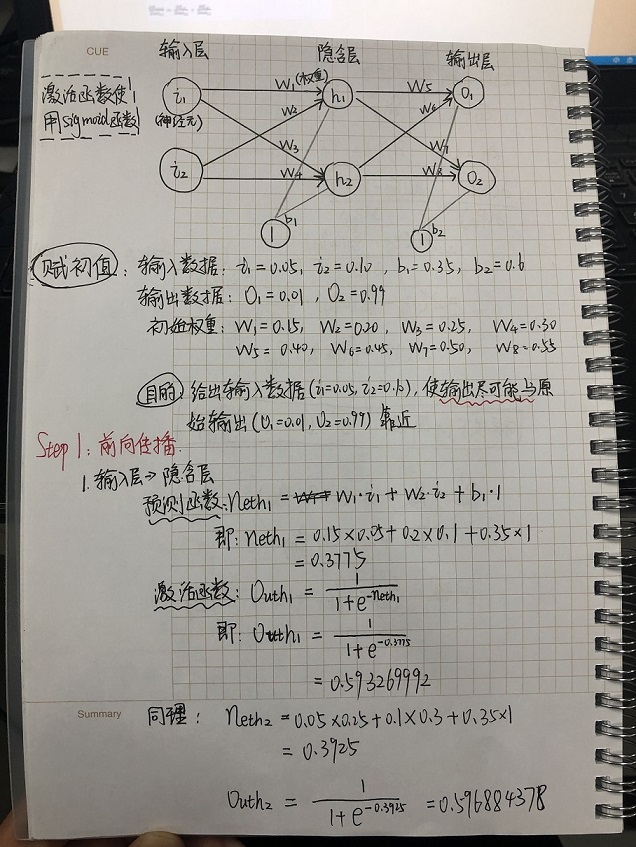 CUE
输入层 隐含层 输出层
激活函数使
用sigmoid函数
i₁ W₁(权重) h₁ W₅ O₁
(神经元) W₂ W₆
W₃ W₇
i₂ W₄ h₂ W₈ O₂
1 b₁ 1 b₂
赋初值: 输入数据: i₁=0.05, i₂=0.10, b₁=0.35, b₂=0.6
输出数据: O₁=0.01, O₂=0.99
初始权重: W₁=0.15, W₂=0.20, W₃=0.25, W₄=0.30
W₅=0.40, W₆=0.45, W₇=0.50, W₈=0.55
目的 给出输入数据(i₁=0.05, i₂=0.10), 使输出尽可能与原
始输出(O₁=0.01, O₂=0.99) 靠近
Step1: 前向传播.
1. 输入层→隐含层
预测函数: Neth₁ = W₁·i₁ + W₂·i₂ + b₁·1
即: neth₁ = 0.15×0.05+0.2×0.1+0.35×1
= 0.3775
激活函数: Outh₁ = 1/(1+e^-neth₁)
即: Outh₁ = 1/(1+e^-0.3775)
= 0.593269992
Summary
同理: neth₂ = 0.05×0.25+0.1×0.3+0.35×1
= 0.3925
Outh₂ = 1/(1+e^-0.3925) = 0.596884378